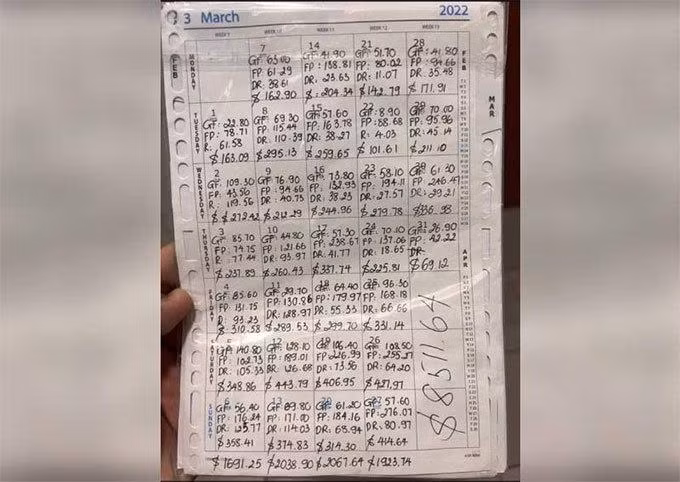 3 March
2022
WEEK 9
WEEK 10
WEEK 11
WEEK 12
WEEK 13
FEB
FEB
MAR
APR
MONDAY
7
GF: 63.00
FP: 61.29
DR: 38.61
$ 162.90
14
GF: 41.90
FP: 138.81
DR: 23.63
$ 204.34
21
GF: 51.70
FP: 80.02
DR: 11.07
$ 142.79
28
GF: 41.80
FP: 94.66
DR: 35.48
$ 171.91
TUESDAY
1
GF: 22.80
FP: 78.71
R: 61.58
$ 163.09
8
GF: 69.30
FP: 115.44
DR: 110.39
$295.13
15
GF: 57.60
FP: 163.78
DR: 38.27
$259.65
22
GF: 8.90
FP: 88.68
R: 4.03
$ 101.61
29
GF: 70.00
FP: 95.96
DR: 45.14
$211.10
WEDNESDAY
2
GF: 109.30
FP: 43.56
R: 119.56
$ 272.42
9
GF: 76.90
FP: 94.66
DR: 40.73
$ 212.29
16
GF: 73.80
FP: 132.93
DR: 38.23
$ 244.96
23
GF: 58.10
FP: 194.11
DR: 27.57
$ 279.78
30
GF: 61.30
FP: 246.47
DR: 29.21
$336.98
THURSDAY
3
GF: 85.70
FP: 74.75
R: 77.44
$237.89
10
GF: 44.80
FP: 121.66
DR: 93.97
$260.43
17
GF: 57.30
FP: 238.67
DR: 41.77
$337.74
24
GF: 70.10
FP: 137.06
DR: 18.65
$225.81
31
GF: 26.90
FP: 42.22
DR:
$69.12
FRIDAY
4
GF: 85.60
FP: 131.75
R: 93.23
$ 310.58
11
GF: 29.70
FP: 130.86
DR: 128.97
$289.53
18
GF: 64.40
FP: 179.97
DR: 55.33
$ 299.70
25
GF: 96.30
FP: 168.18
DR: 66.66
$ 331.14
SATURDAY
5
GF: 140.80
FP: 102.73
DR: 105.33
$348.86
12
GF: 128.10
FP: 189.01
DR: 126.68
$443.79
19
GF: 106.40
FP: 226.99
DR: 73.56
$406.95
26
GF: 108.50
FP: 255.27
DR: 64.20
$427.97
SUNDAY
6
GF: 56.40
FP: 176.24
DR: 125.77
$358.41
13
GF: 89.80
FP: 171.00
DR: 114.03
$374.83
20
GF: 61.20
FP: 184.16
DR: 68.94
$314.30
27
GF: 57.60
FP: 276.07
DR: 80.97
$414.64
$8511.64
$1691.25
$2038.90
$2067.64
$1923.74